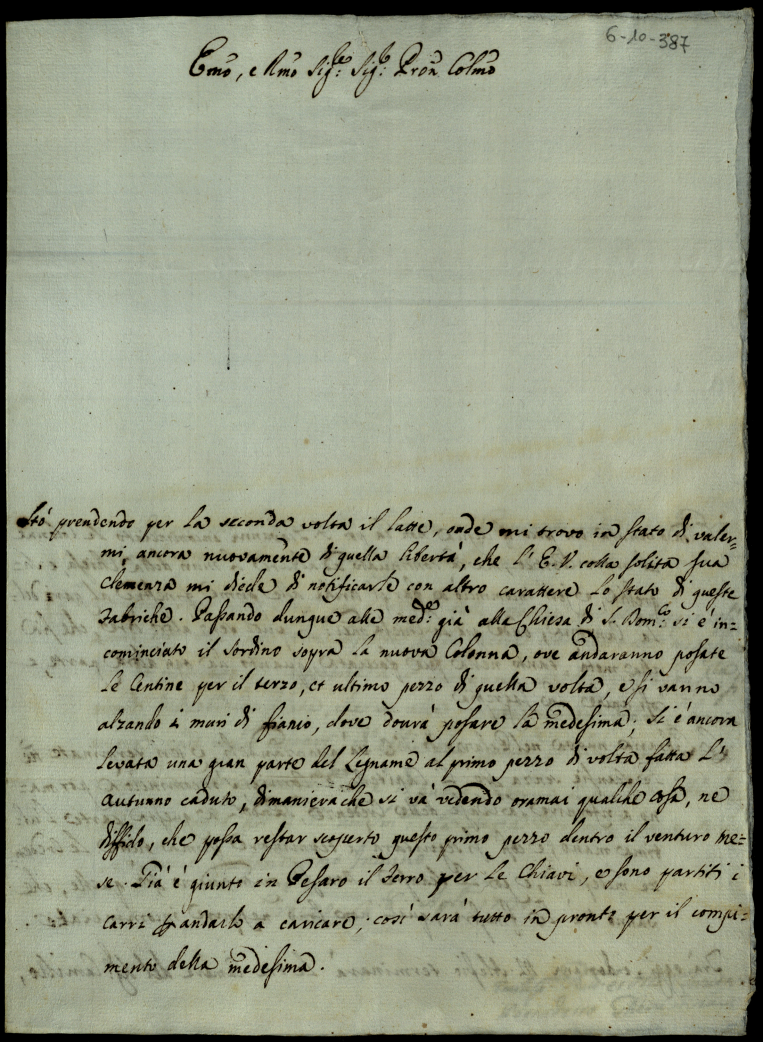 6-10-387
Emo, e Rmo Sigre: Sigr: Pron Colmo
Stò prendendo per la seconda volta il latte, onde mi trovo in stato di valer=
mi ancora nuovamente di quella libertà, che l'E.V. colla solita sua
clemenza mi diede di notificarle con altro carattere lo stato di queste
Fabriche. Passando dunque alle medme: già alla Chiesa di S. Domco: si è in=
cominciato il sordino sopra la nuova Colonna, ove andaranno posate
le Centine per il terzo, et ultimo pezzo di quella volta, e si vanno
alzando i muri di fianco, dove dourà posare la medesima; Si è ancora
levata una gran parte del Legname al primo pezzo di volta fatta l'
autunno caduto, dimanierache si và vedendo oramai qualche cosa, ne
diffido, che possa restar scoperto questo primo pezzo dentro il venturo me=
se. Già è giunto in Pesaro il Ferro per le Chiavi, e sono partiti i
carri p andarlo a caricare, così sarà tutto in pronto per il compi=
mento della medesima.